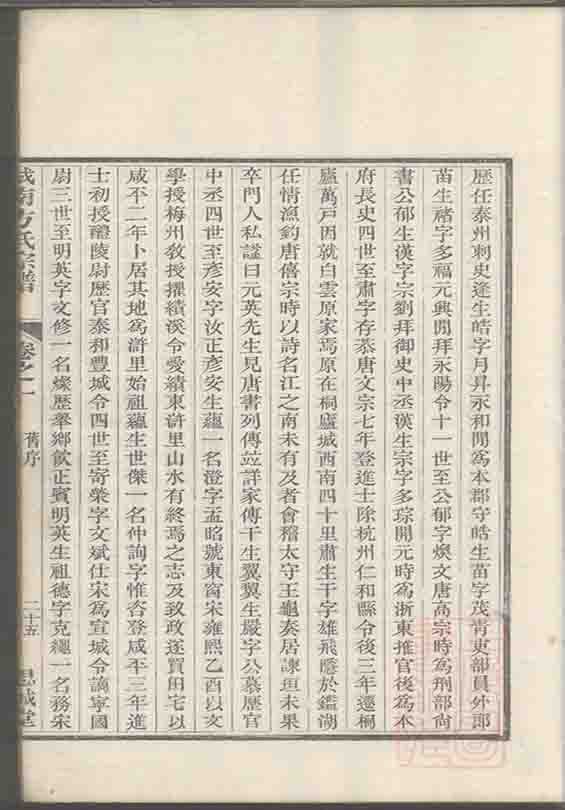 歷任泰州刺史逢生皓字月昇永和閒為本郡守皓生苗字茂青吏部員外郎
苗生禇字多福元興閒拜永陽令十一世至公郁字燦文唐高宗時為刑部尙
書公郁生漢字宗劉拜御史中丞漢生宗字多琮開元時為浙東推官後為本
府長史四世至肅字存恭唐文宗七年登進士除杭州仁和縣令後三年還桐
廬萬戸因就白雲原家焉原在桐廬城西南四十里肅生干字雄飛隱於鑑湖
任情漁釣唐僖宗時以詩名江之南未有及者會稽太守王龜奏居諫垣未果
卒門人私諡曰元英先生見唐書列傳竝詳家傳干生翼翼生嚴字公慕歷官
中丞四世至彥安字汝正彥安生蘊一名澄字孟昭號東窗宋雍熙乙酉以文
學授梅州敎授擢績溪令愛績東滸里山水有終焉之志及致政遂買田宅以
咸平二年卜居其地為滸里始祖蘊生世傑一名仲詢字惟杏登咸平三年進
士初授醴陵尉歷官泰和豐城令四世至寄榮字文斌仕宋為宣城令謫寧國
尉三世至明英字文修一名燦歷舉鄉飲正賓明英生祖德字克繩一名務宋
城南方氏宗譜 卷之一 舊序 二十五 思誠堂